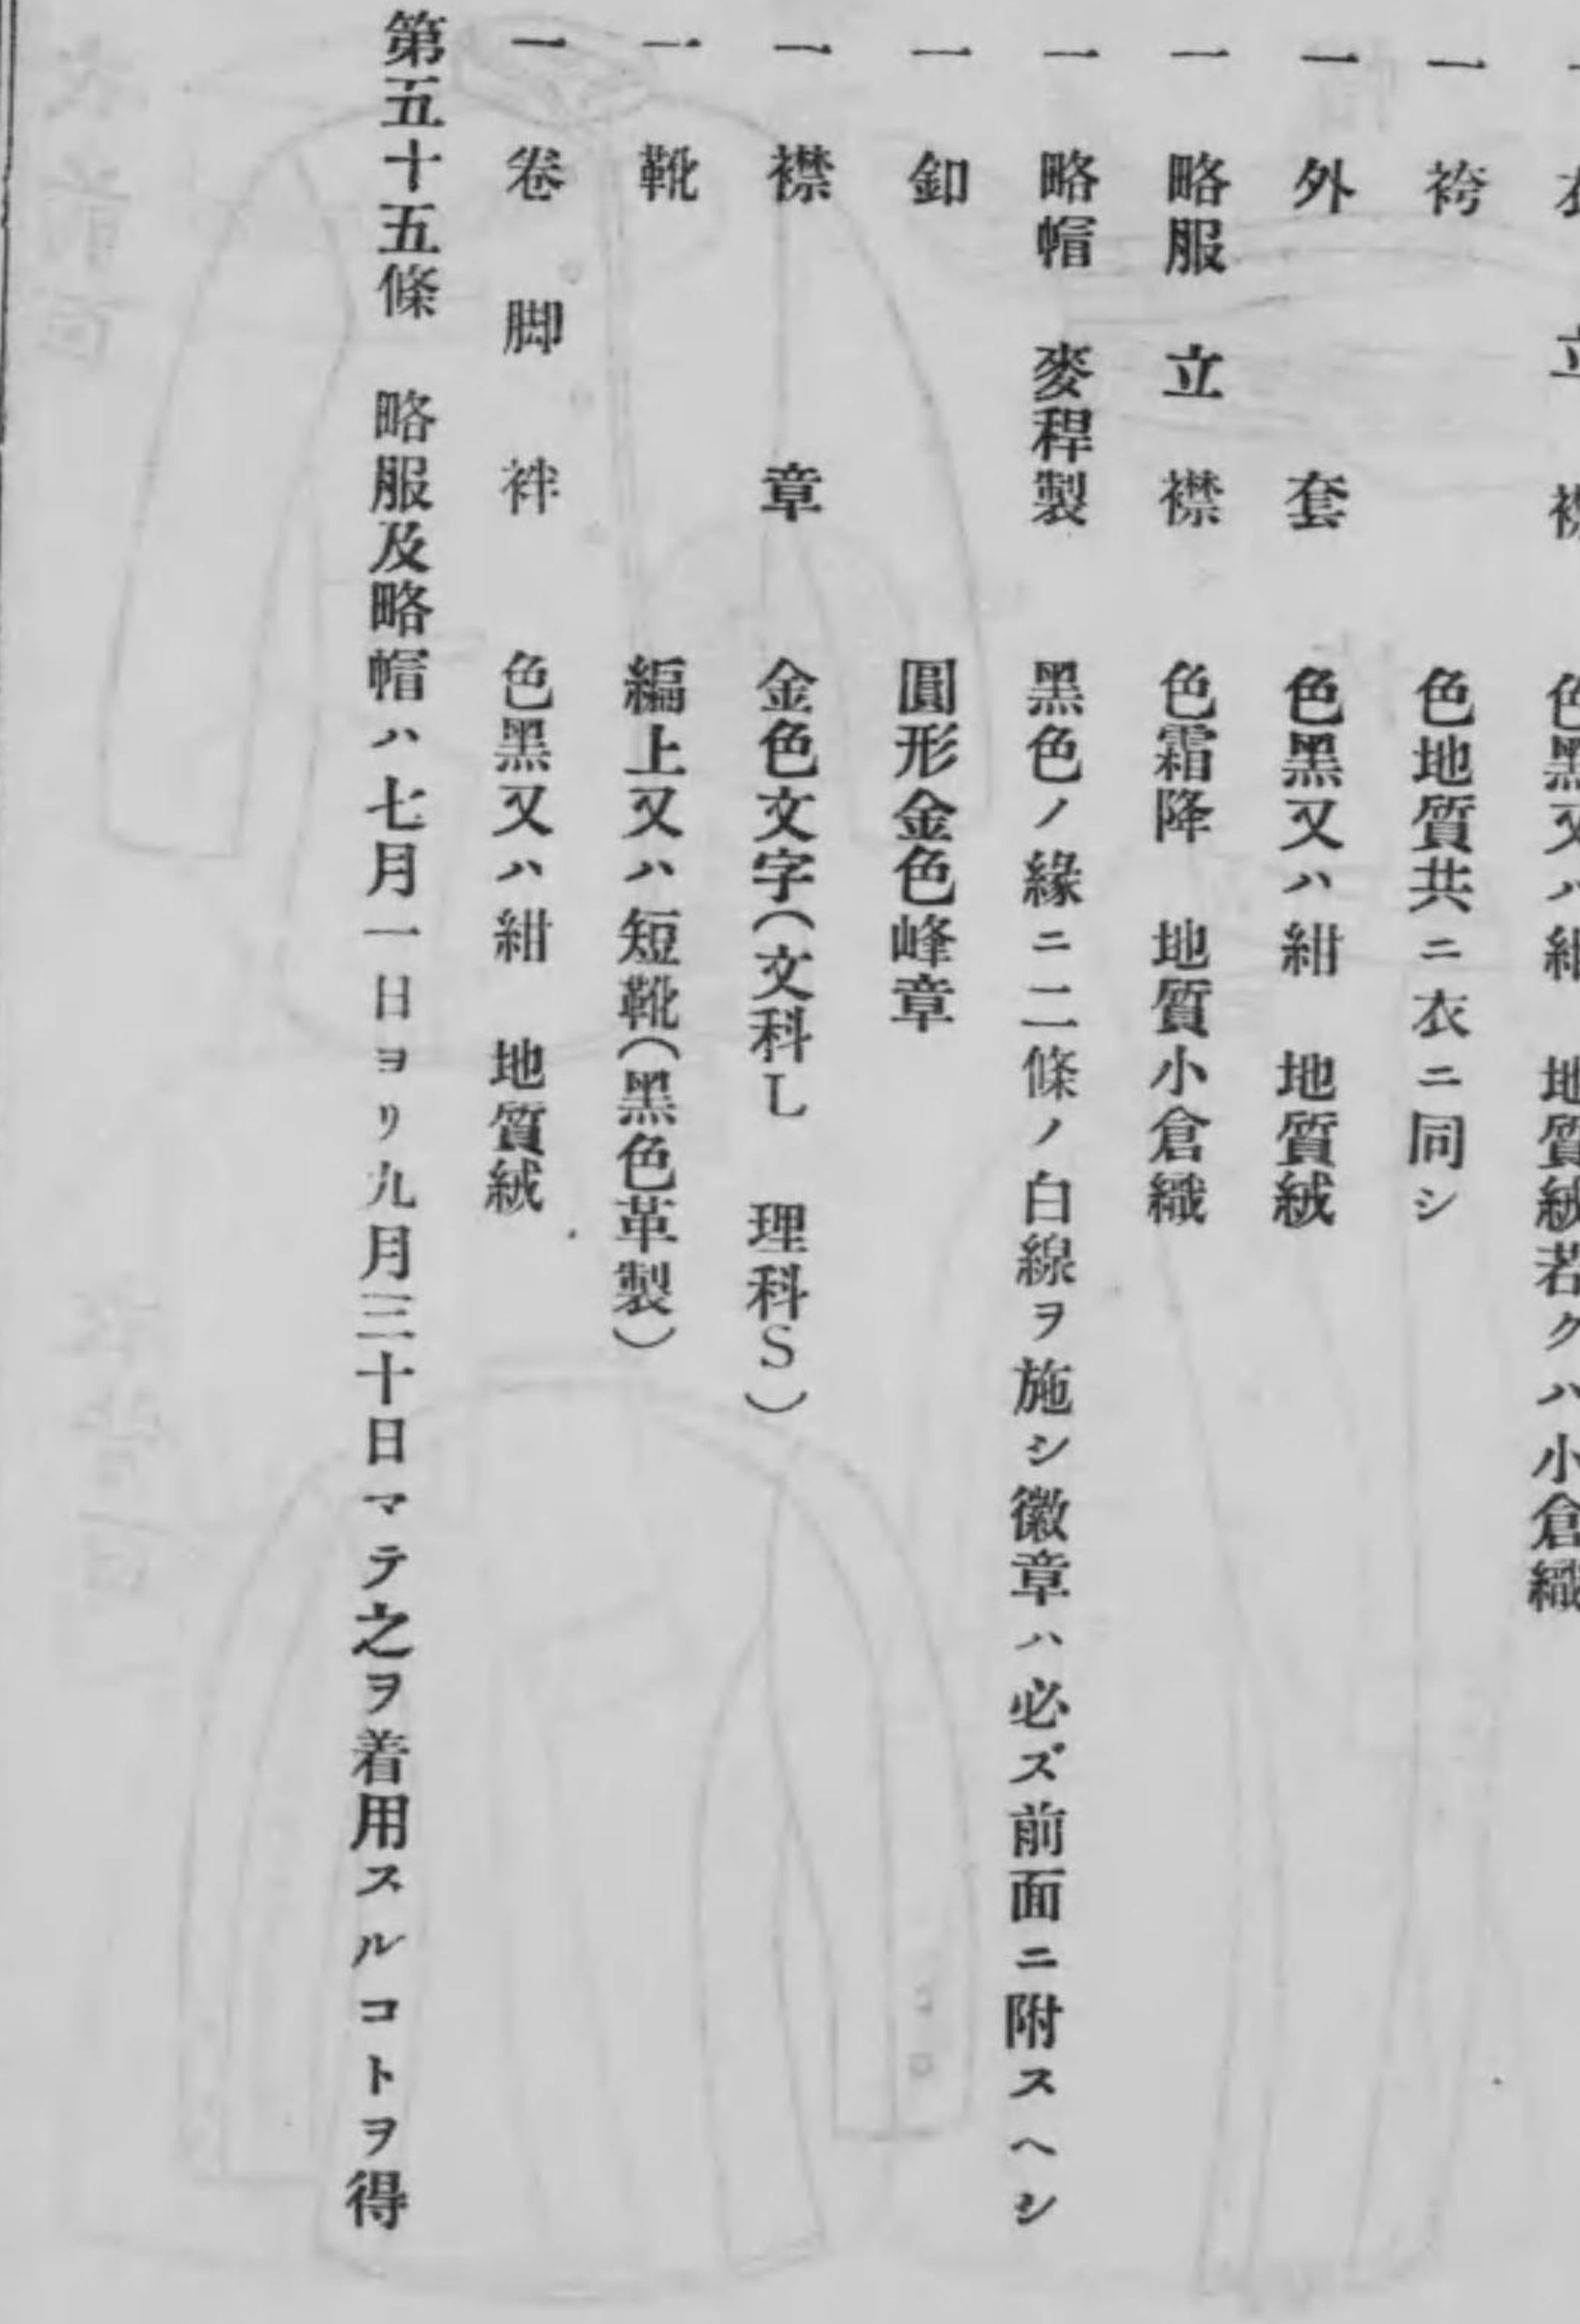 一 衣立襟 色黑又ハ紺 地質絨若クハ小倉織
一 袴 色地質共ニ衣ニ同シ
一 外套 色黑又ハ紺 地質絨
一 略服立襟 色霜降 地質小倉織
一 略帽 麥稈製 黑色ノ緣ニ二條ノ白線ヲ施シ徽章ハ必ズ前面ニ附スヘシ
一 釦 圓形金色峰章
一 襟章 金色文字(文科L 理科S)
一 靴 編上又ハ短靴(黑色革製)
一 卷脚袢 色黑又ハ紺 地質絨
第五十五條 略服及略帽ハ七月一日ヨリ九月三十日マテ之ヲ着用スルコトヲ得